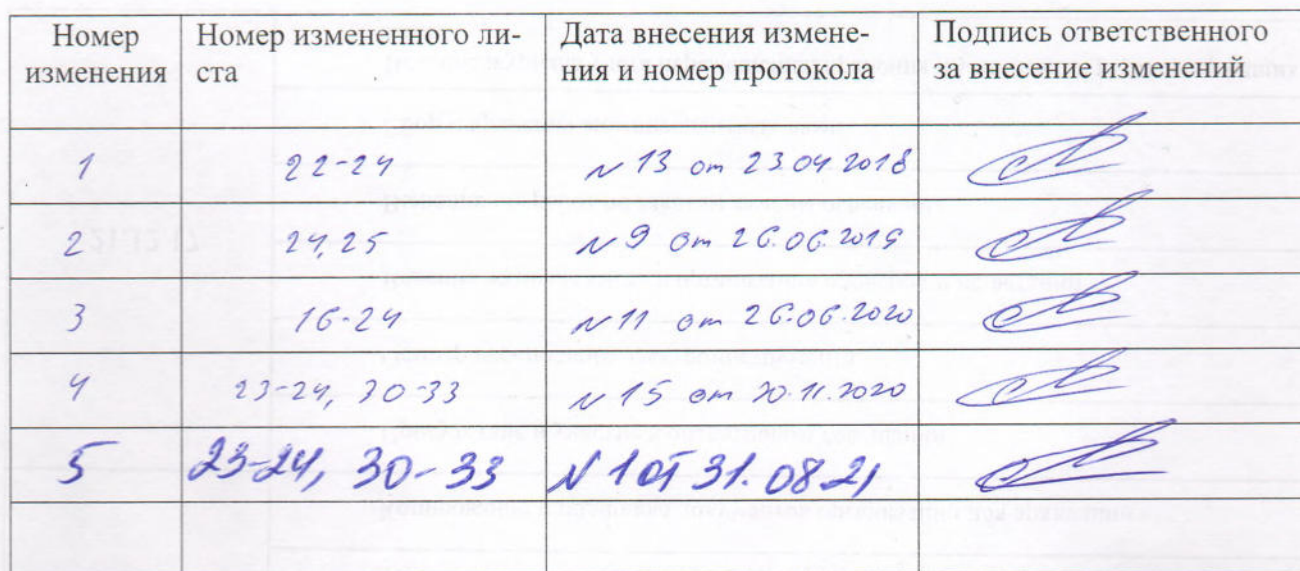 Номер изменения
Номер измененного ли-
ста
Дата внесения измене-
ния и номер протокола
Подпись ответственного
за внесение изменений
1 22-24 N 13 от 23.04.2018
2 24,25 N 9 от 26.06.2019
3 16-24 N 11 от 26.06.2020
4 23-24, 30-33 N 15 от 20.11.2020
5 23-24, 30-33 N 1 от 31.08.21